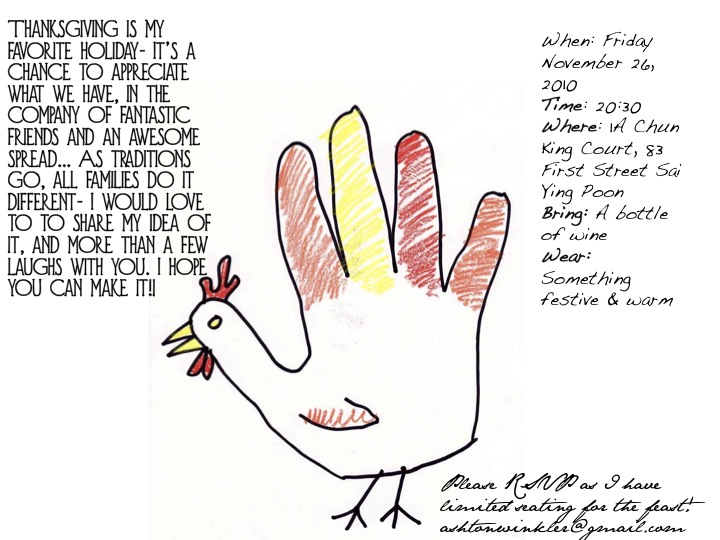 Thanksgiving is my
favorite holiday- it's a
chance to appreciate
what we have, in the
company of fantastic
friends and an awesome
spread... As traditions
go, all families do it
different- I would love
to to share my idea of
it, and more than a few
laughs with you. I hope
you can make it!!
When: Friday
November 26,
2010
Time: 20:30
Where: 1A Chun
King Court, 83
First Street Sai
Ying Poon
Bring: A bottle
of wine
Wear:
Something
festive & warm
Please RSVP as I have
limited seating for the feast!
ashtonwinkler@gmail.com